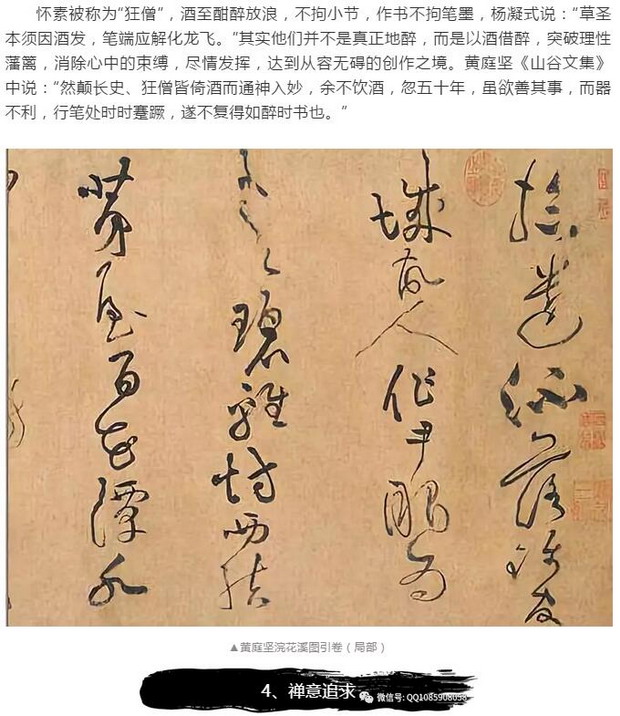 怀素被称为“狂僧”，酒至酣醉放浪，不拘小节，作书不拘笔墨，杨凝式说：“草圣
本须因酒发，笔端应解化龙飞。”其实他们并不是真正地醉，而是以酒借醉，突破理性
藩篱，消除心中的束缚，尽情发挥，达到从容无碍的创作之境。黄庭坚《山谷文集》
中说：“然颠长史、狂僧皆倚酒而通神入妙，余不饮酒，忽五十年，虽欲善其事，而器
不利，行笔处时时蹇蹶，遂不复得如醉时书也。”
拾遺流落錦官
城故人作尹眼為
青碧雞坊西結
茅屋百花潭水
▲黄庭坚浣花溪图引卷（局部）
4、禅意追求
微信号: QQ1085908058